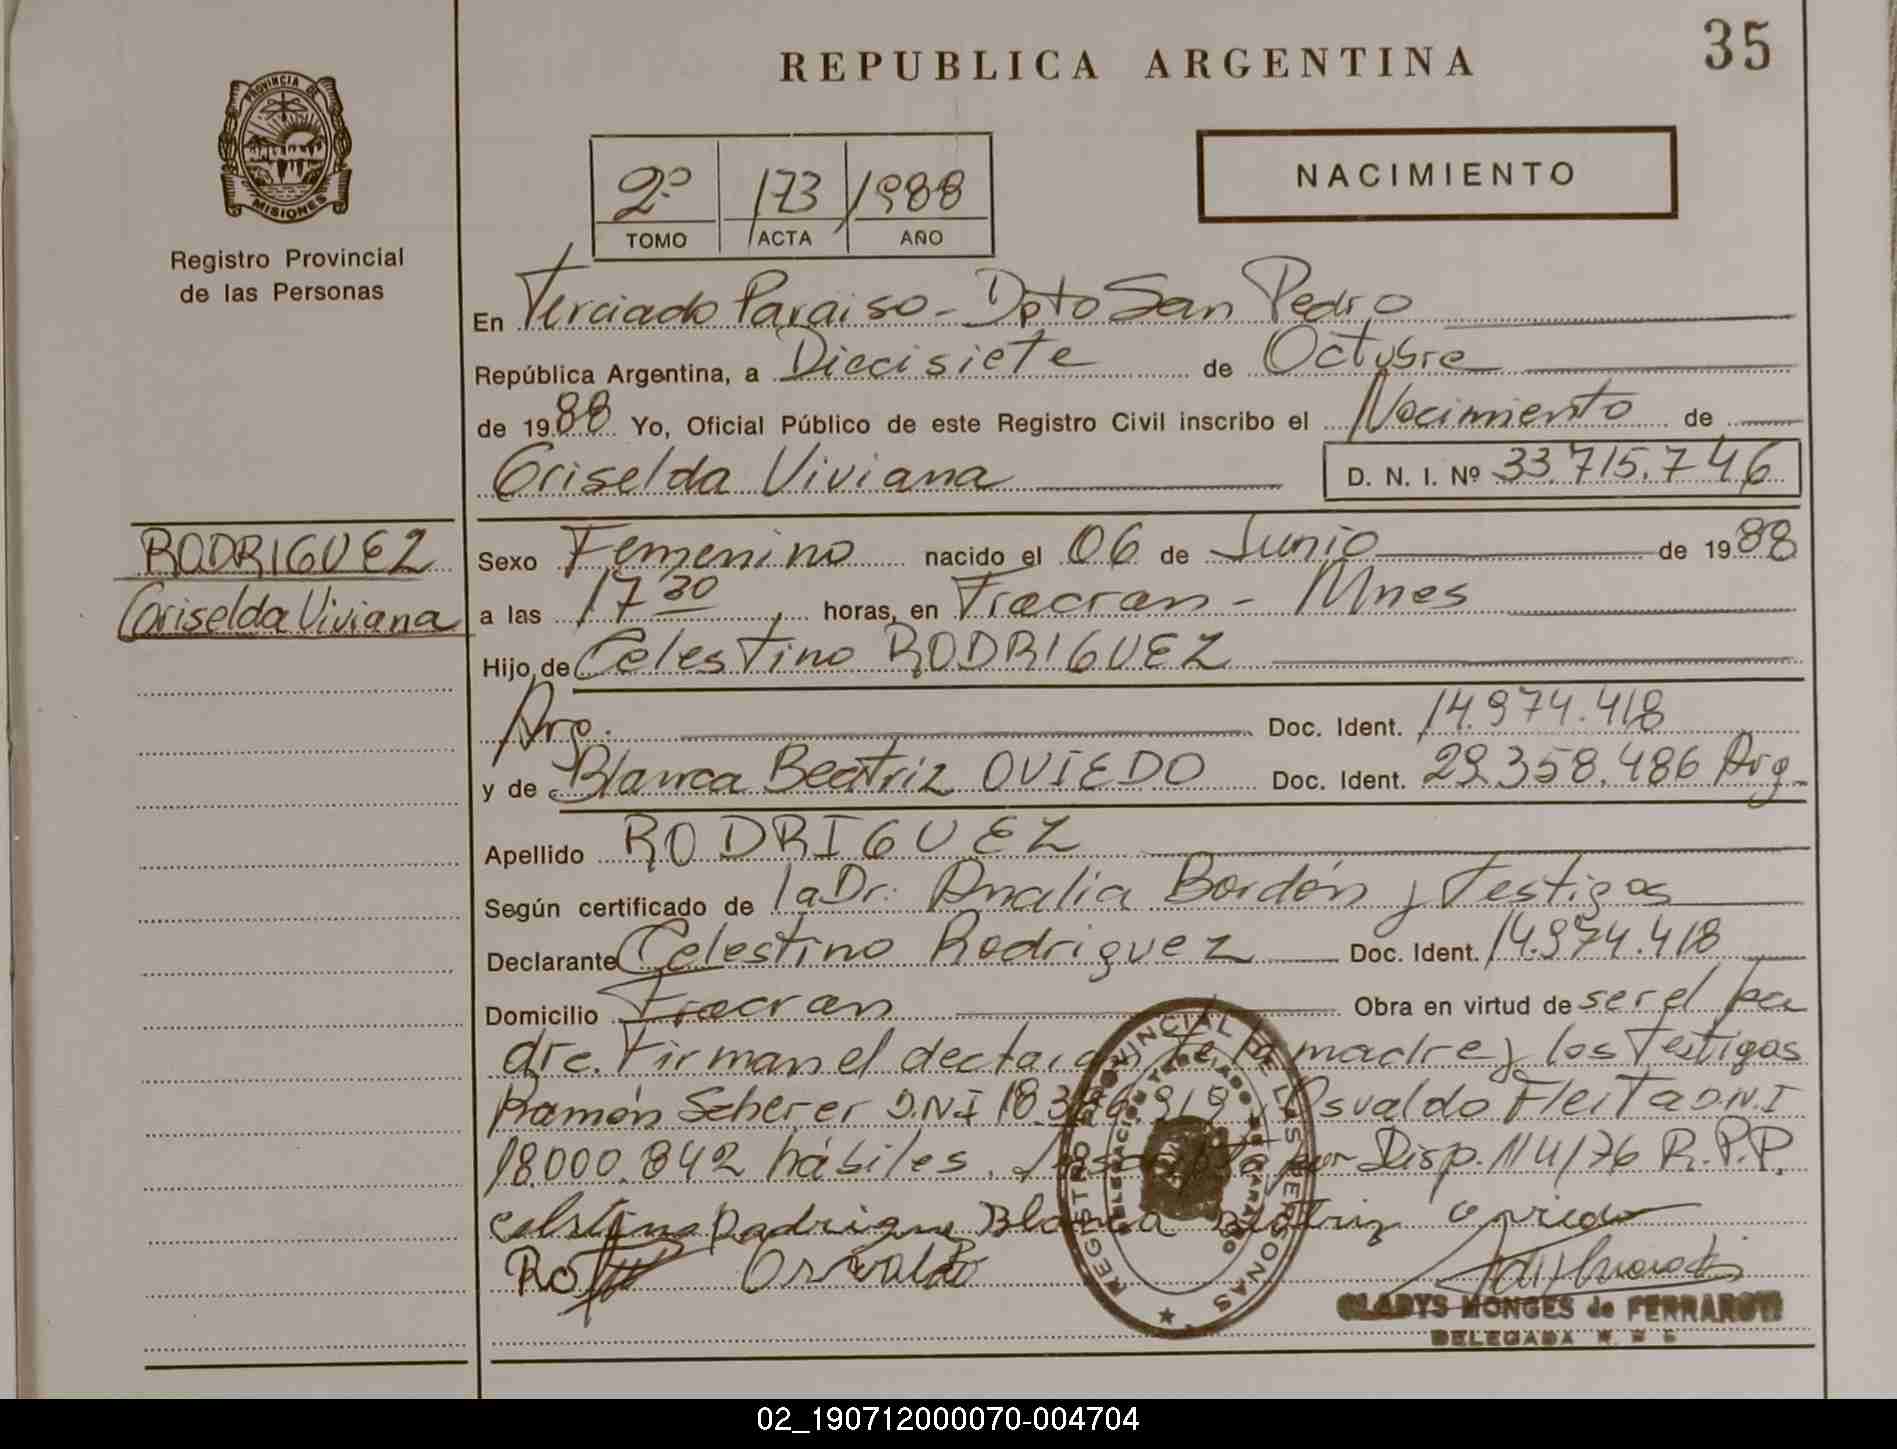 REPUBLICA ARGENTINA
35
PROVINCIA DE MISIONES
Registro Provincial
de las Personas
2º 173 1988
TOMO ACTA AÑO
NACIMIENTO
En Terciado Paraiso - Dpto San Pedro
República Argentina, a Diecisiete de Octubre
de 1988 Yo, Oficial Público de este Registro Civil inscribo el Nacimiento de
Griselda Viviana D. N. I. Nº 33.715.746
RODRIGUEZ
Griselda Viviana
Sexo Femenino nacido el 06 de Junio de 1988
a las 17 30 horas, en Fracran - Mnes
Hijo de Celestino RODRIGUEZ
Arg. Doc. Ident. 14.974.418
y de Blanca Beatriz OVIEDO Doc. Ident. 29.358.486 Arg.
Apellido RODRIGUEZ
Según certificado de la Dr. Analia Bordón y Testigos
Declarante Celestino Rodriguez Doc. Ident. 14.974.418
Domicilio Fracran Obra en virtud de ser el pa
dre. Firman el la madre y los Testigos
Ramón Scherer D.N.I Osvaldo Fleita D.N.I
18.000.842 hábiles. por Disp. 114/76 R.P.P.
Blanca Beatriz
Osvaldo
REGISTRO PROVINCIAL DE LAS PERSONAS
GLADYS MONGES de FERRAROTI
DELEGADA
02_190712000070-004704